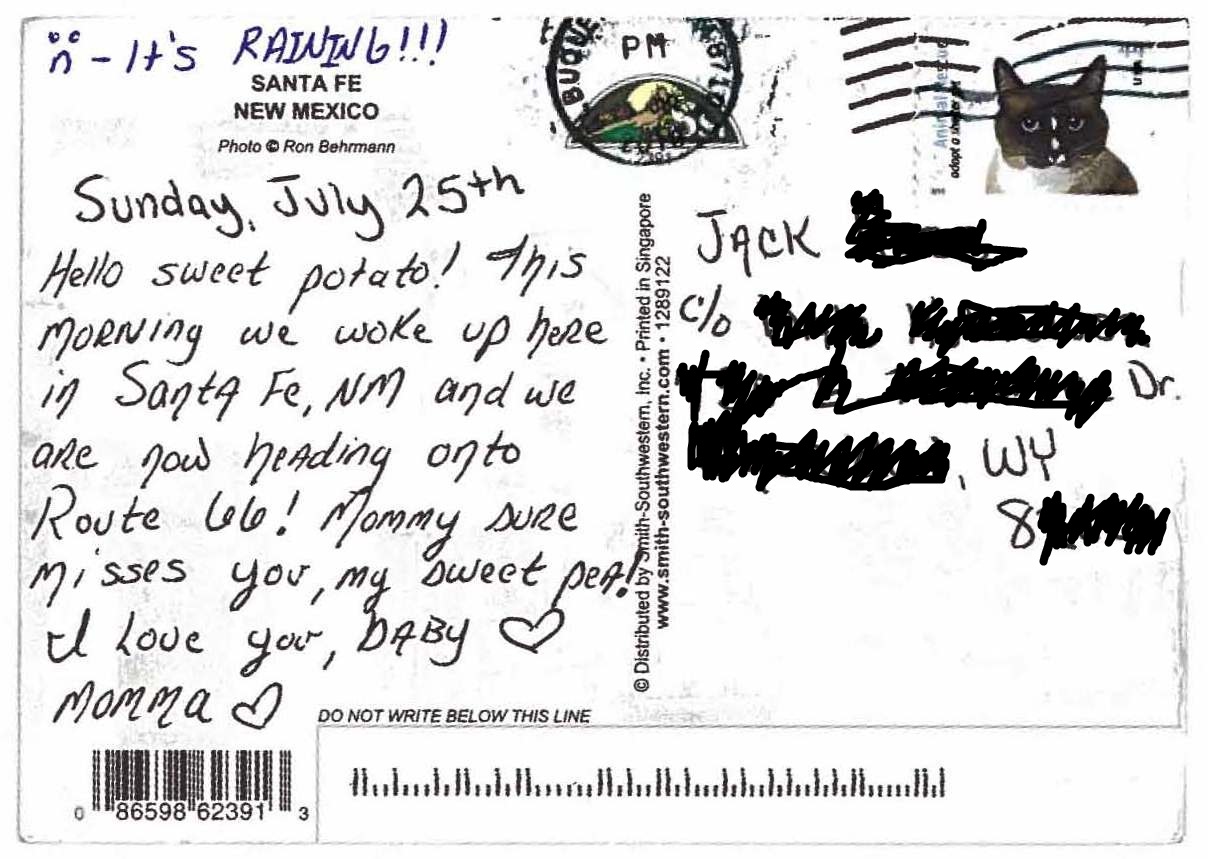 - It's RAINING!!!
SANTA FE
NEW MEXICO
Photo © Ron Behrmann
Sunday, July 25th
Hello sweet potato! This
MORNING we woke up here
in Santa Fe, NM and we
are now heading onto
Route 66! Mommy sure
misses you, my sweet pea!
I Love you, BABY ♡
MOMMA ♡
DO NOT WRITE BELOW THIS LINE
0 86598 62391 3
© Distributed by Smith-Southwestern, Inc. • Printed in Singapore
www.smith-southwestern.com • 1289122
BUQUE
PM
Animal Rescue
adopt a shelter pet
JACK
c/o
Dr.
, WY
8